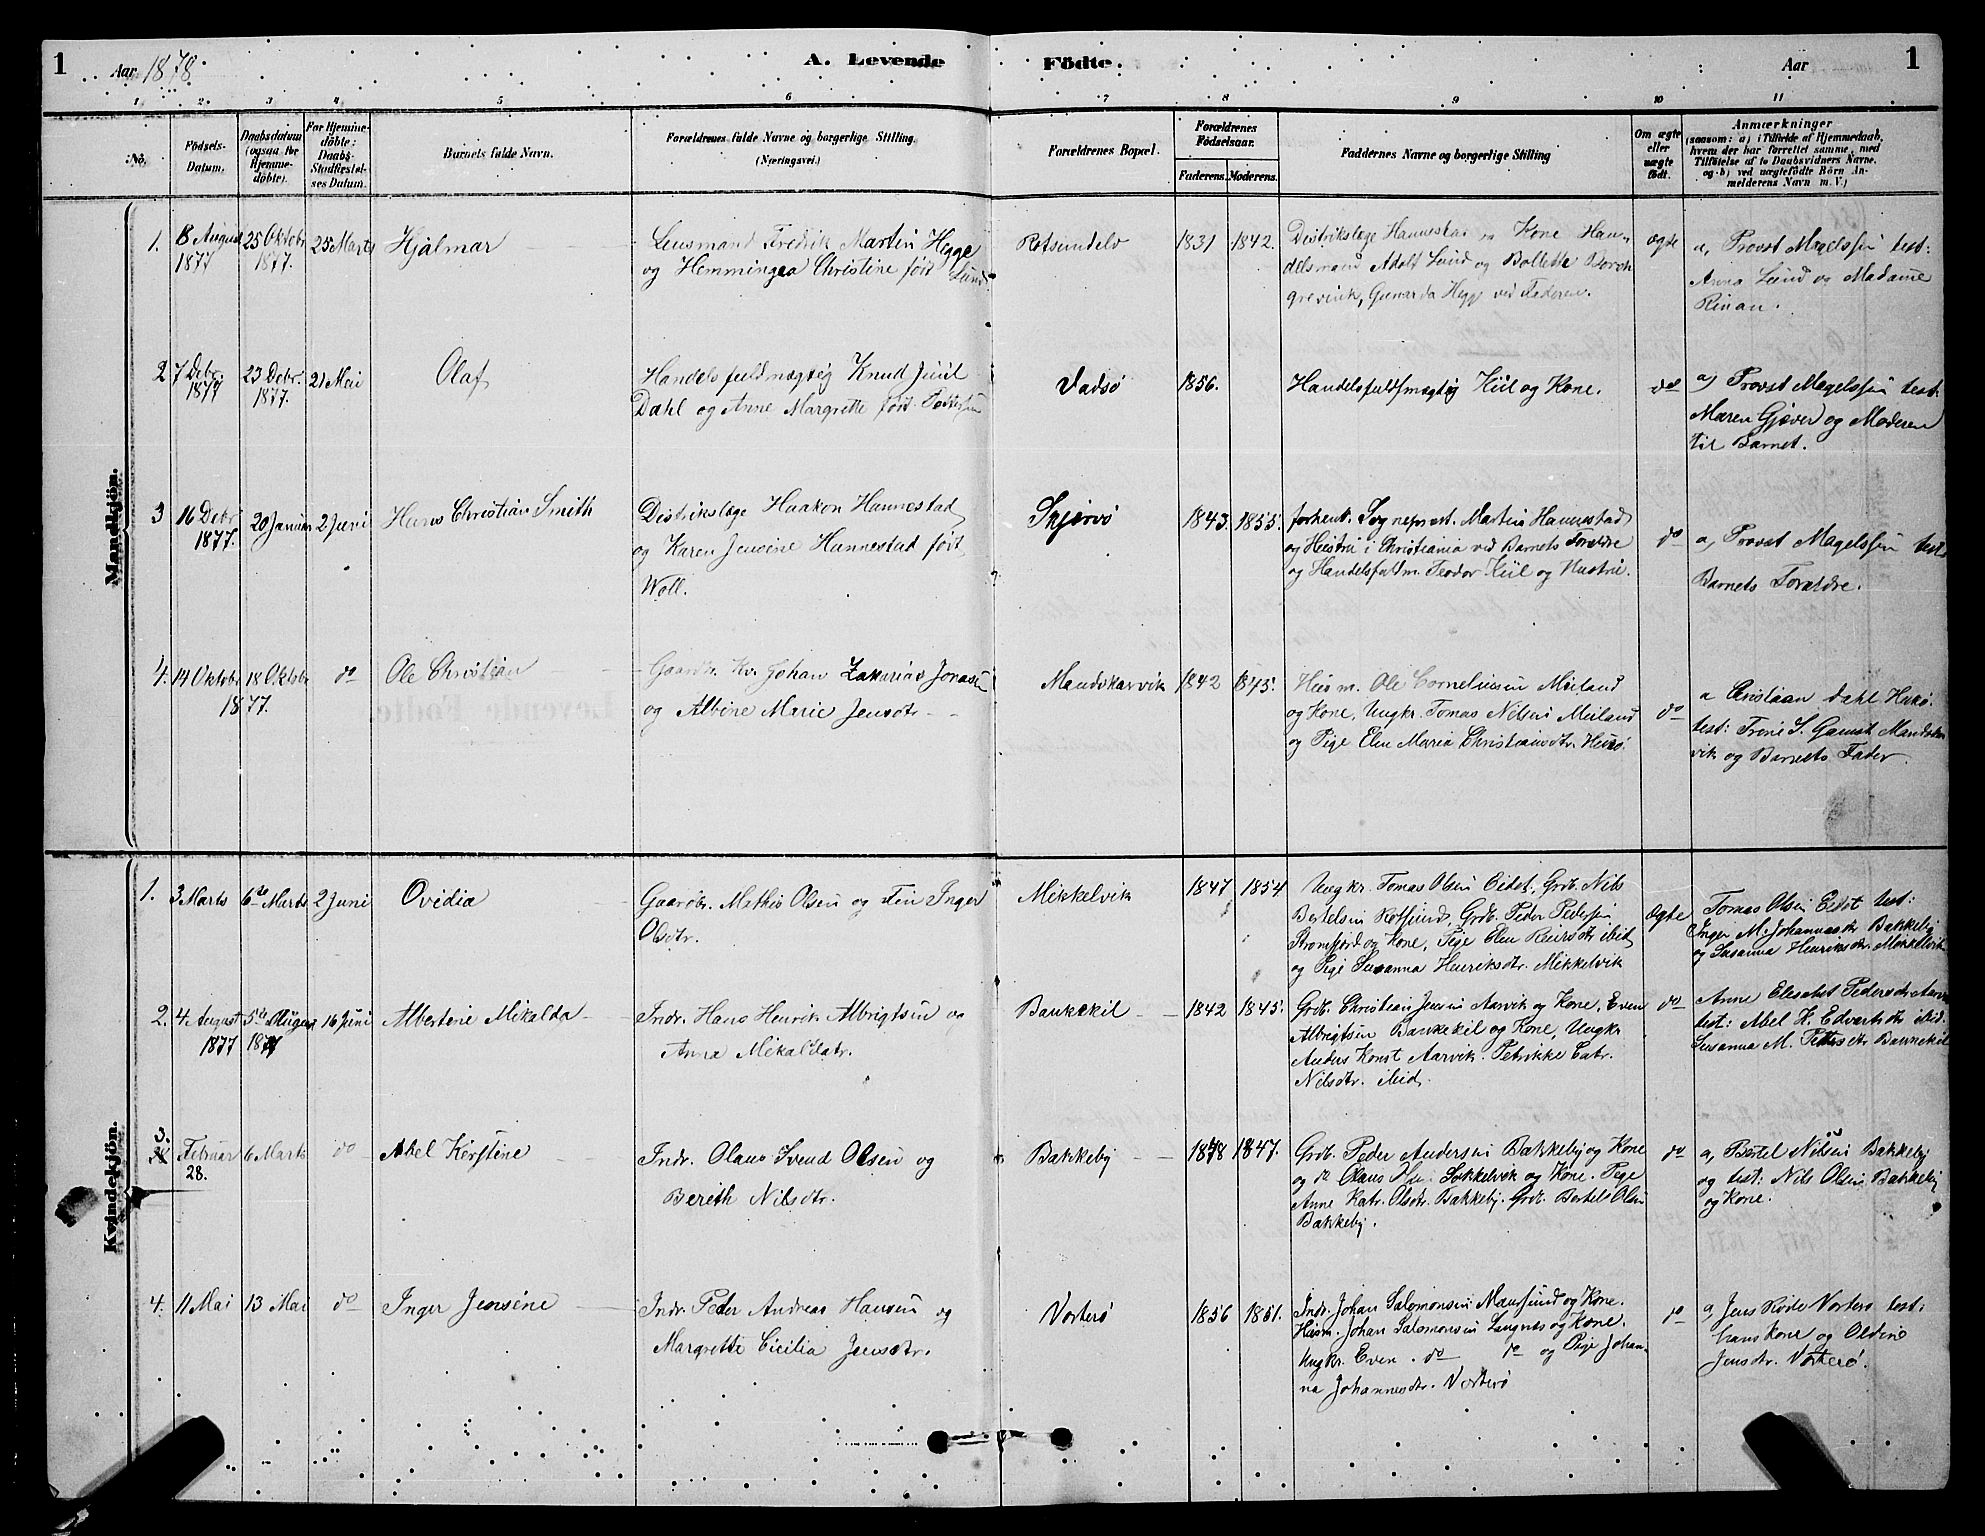 1 Aar 1878 A. Levende Födte. Aar 1
1 2 3 4 5 6 7 8 9 10 11
No.
Födsels-
Datum.
Daabsdatum
(ogsaa for
Hjemme-
döbte).
For Hjemme-
döbte:
Daabs-
Stadfæstel-
ses Datum.
Barnets fulde Navn.
Forældrenes fulde Navne og borgerlige Stilling.
(Næringsvei.)
Forældrenes Bopæl.
Forældrenes
Födselsaar.
Faderens. Moderens.
Faddernes Navne og borgerlige Stilling
Om ægte
eller
uægte
födt.
Anmærkninger
(saasom: a) i Tilfælde af Hjemmedaab,
hvem der har forrettet samme, med
Tilföielse af to Daabsvidners Navne.
og b) ved uægtefödte Börn An-
melderens Navn m. V.)
Mandkjön.
1. 8 August
1877
25 Oktobr
1877.
25 Marts
Hjalmar
Lensmand Fredrik Martin Hegge
og Hemmingea Christine født Lund.
Rotsundelv
1831 1842.
Distriktslæge Hannestad og Kone Han-
delsmand Adolf Lund og Bollette Borch
grevink, Gunarda Hegge ved Faderen.
ægte
a, Provst Magelssen test:
Anna Lund og Madame
Rinan.
2 7 Debr.
1877
23 Debr.
1877.
21 Mai
Olaf
Handelsfuldmægtig Knud Juul
Dahl og Anne Margrette født Pettersen
Vadsø
1856.
Handelsfuldmægtig Kiil og Kone.
do
a) Provst Magelssen test.
Maren Gjæver og Moderen
til Barnet.
3 16 Debr
1877.
20 Januar
2 Juni
Hans Christian Smith
Distriktslæge Haakon Hannestad
og Karen Jensine Hannestad født
Woll.
Skjervø
1843. 1855.
forhent. Sogneprest. Martin Hannestad
og Hustru i Christiania ved Barnets Forældre
og Handelsfuldm. Teodor Kiil og Hustru.
do
a, Provst Magelssen test
Barnets Forældre.
4. 14 Oktobr
1877.
18 Oktobr
do
Ole Christian
Gaardbr. Kv. Johan Zakarias Jonassen
og Albine Marie Jensdtr
Mandskarvik
1842 1845.
Husm. Ole Corneliusen Meiland
og Kone, Ungkr. Tomas Nilsen Meiland
og Pige Elen Maria Christiansdtr. Haukø.
do
a Cristian Dahl Haukø.
test: Trine S. Gamst Mandskar
vik og Barnets Fader.
Kvindekjön.
1. 3 Marts
6te Marts
2 Juni
Ovidia
Gaardbr. Mathis Olsen og Fin Inger
Olsdtr.
Mikkelvik
1847 1854
Ungkr. Tomas Olsen Eidet, Grdb. Nils
Bertelsen Rotsund, Grdb. Peder Pedersen
Strømfjord og Kone, Pige Elen Reiersdtr ibid
og Pige Susanna Henriksdtr. Mikkelvik
ægte
Tomas Olsen Eidet test:
Inger M. Johannasdtr Bakkeby
og Susanna Henriksdtr. Mikkelvik
2. 4 August
1877
5te August
1877
16 Juni
Albertine Mikalda
Indr. Hans Henrik Albrigtsen og
Anna Mikalsdtr.
Bankekil
1842 1845.
Grdb. Christian Jensen Aarvik og Kone, Even
Albrigtsen Bankekil og Kone, Ungkr
Anders Konst Aarvik. Petrikke Catr.
Nilsdtr. ibid.
do
Anne Elesabet Pedersdtr Aarvik
test: Abel K. Edvartsdtr ibid.
Susanna M. Pettersdtr Bankekil
3. Februar
28.
6 Marts
do
Abel Kirstine
Indr. Olaus Svend Olsen og
Bereth Nilsdtr.
Bakkeby
1848 1847.
Grdb. Peder Andersen Bakkeby og Kone
og do Olaus Olsen Søkkelvik og Kone. Pige
Anne Katr. Olsdtr. Bakkeby. Grdb. Bertel Olsen
Bakkeby.
do
a, Bertel Nilsen Bakkeby
og test: Nils Olsen Bakkeby
og Kone.
4. 11 Mai
13 Mai
do
Inger Jensine
Indr. Peder Andreas Hansen og
Margrette Cicilia Jensdtr.
Vorterø
1856 1851.
Indr. Johan Salomonsen Maursund og Kone.
Husm. Johan Salomonsen Langnæs og Kone.
Ungkr. Even do do og Pige Johan-
na Johannesdtr. Vorterø
do
a, Jens Røde Vorterø test:
hans Kone og Oldine
Jensdtr. Vorterø.